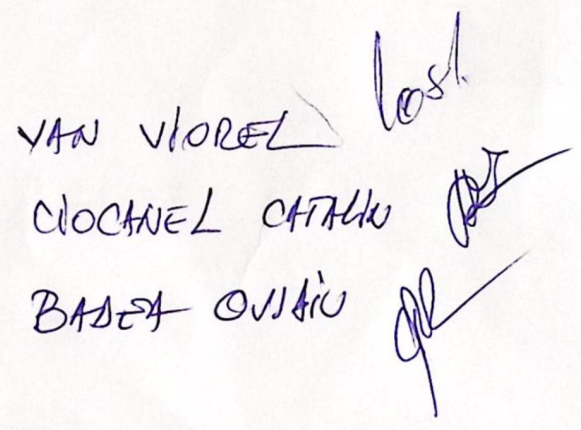 YAN VIOREL
CIOCANEL CATALIN
BADEA OVIDIU